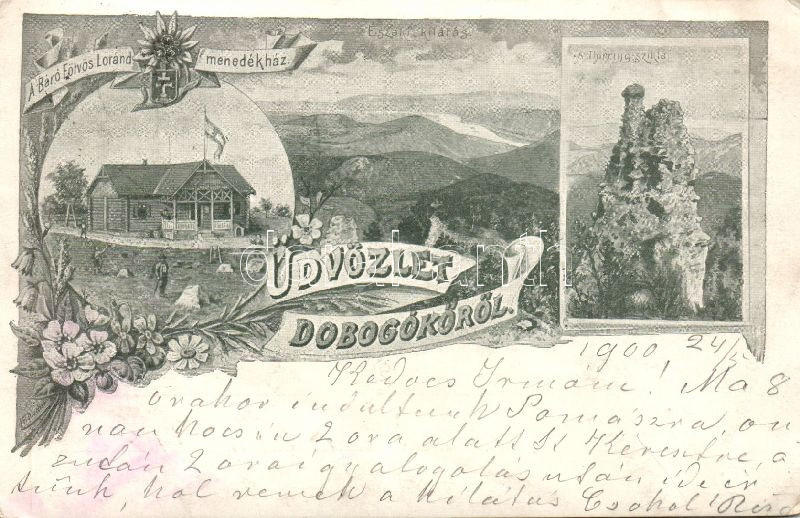 Északi kilátás.
A Báró Eötvös Loránd menedékház.
A Thirring szikla
ÜDVÖZLET
DOBOGÓKŐRŐL.
1900 24/5
Kedves Irmám! Ma 8
órakor indultunk Pomázra, on
nan kocsin 2 óra alatt Sz Keresztre, a
zután 2 órai gyalogolás után ide ér
tünk, hol remek a kilátás Csókol